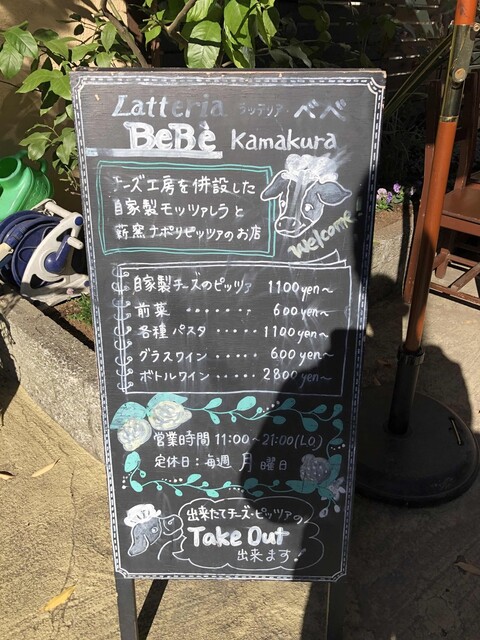 Latteria ラッテリア・ベベ
BeBè Kamakura
チーズ工房を併設した
自家製モッツァレラと
薪窯ナポリピッツァのお店
Welcome!
自家製チーズのピッツァ 1100yen〜
前菜 ・・・・・・・ 600yen〜
各種パスタ ・・・・・ 1100yen〜
グラスワイン ・・・・・ 600yen〜
ボトルワイン ・・・・ 2800yen〜
営業時間 11:00〜21:00(L.O.)
定休日：毎週 月 曜日
出来たてチーズ・ピッツァの
Take Out
出来ます!